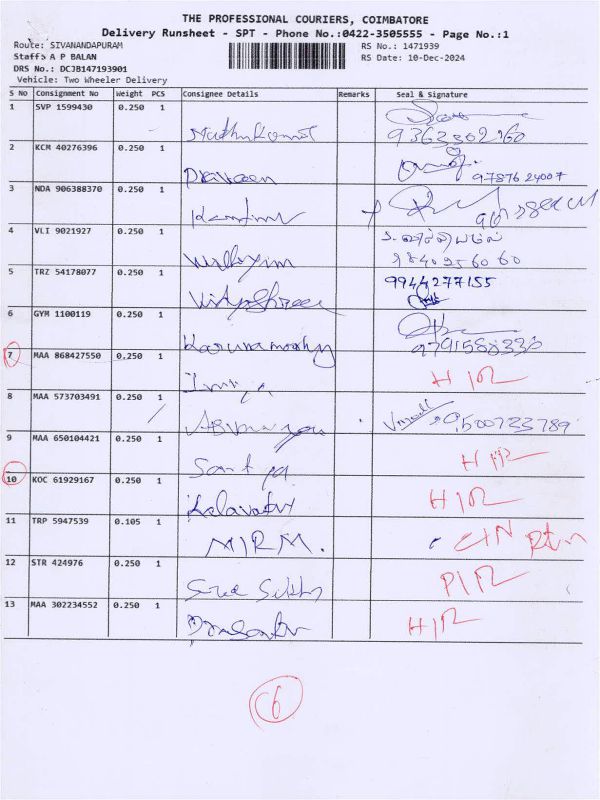 THE PROFESSIONAL COURIERS, COIMBATORE
Delivery Runsheet - SPT - Phone No.:0422-3505555 - Page No.:1
Route: SIVANANDAPURAM RS No.: 1471939
Staff: A P BALAN RS Date: 10-Dec-2024
DRS No.: DCJB147193901
Vehicle: Two Wheeler Delivery
S No Consignment No Weight PCS Consignee Details Remarks Seal & Signature
1 SVP 1599430 0.250 1 9363302960
2 KCM 40276396 0.250 1 Praveen 9787624007
3 NDA 906388370 0.250 1
4 VLI 9021927 0.250 1 9840256060
5 TRZ 54178077 0.250 1 Vidyashree 9944277155
6 GYM 1100119 0.250 1 Karunamoorthy 9791588330
7 MAA 868427550 0.250 1 H/R
8 MAA 573703491 0.250 1 9500733789
9 MAA 650104421 0.250 1 H/R
10 KOC 61929167 0.250 1 H/R
11 TRP 5947539 0.105 1 M/R M.
12 STR 424976 0.250 1 P/R
13 MAA 302234552 0.250 1 H/R
6